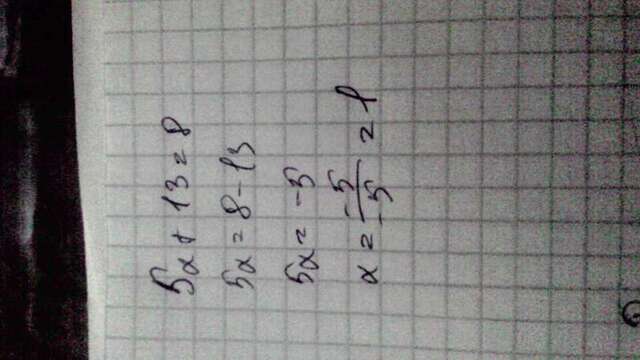 5x + 13 = 8
5x = 8 - 13
5x = -5
x = -5/-5 = 1